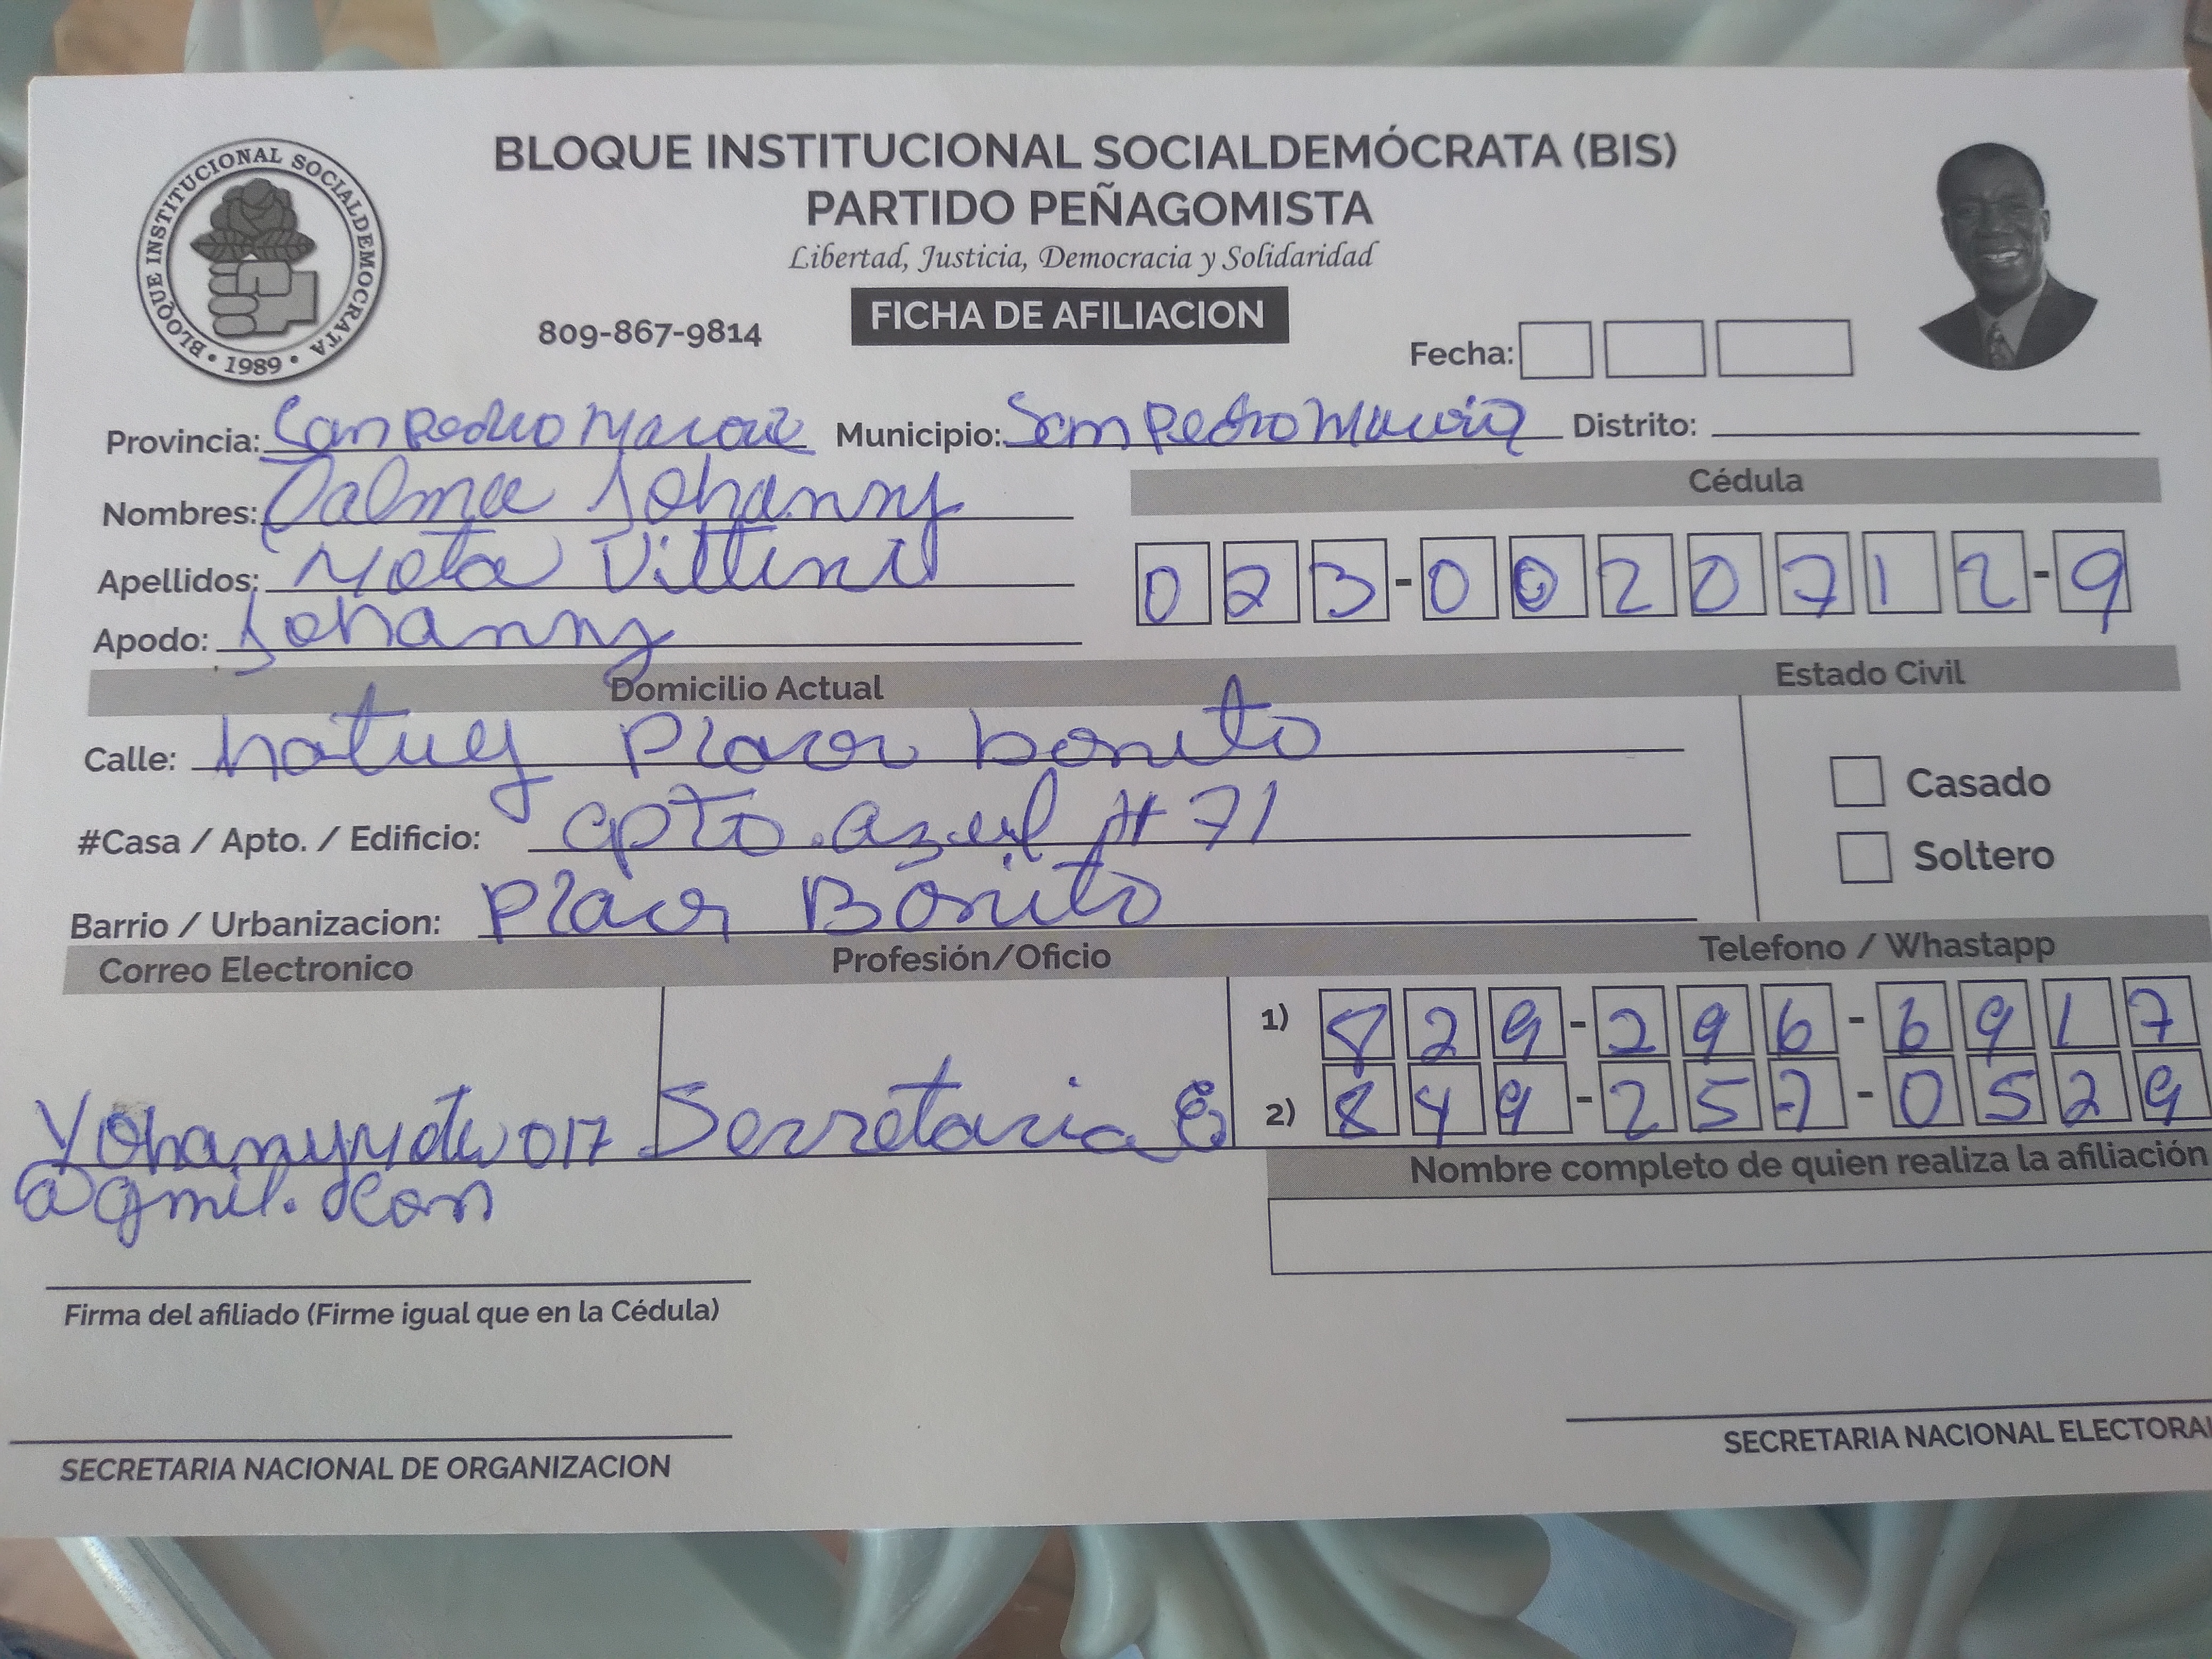 BLOQUE INSTITUCIONAL SOCIALDEMÓCRATA (BIS)
PARTIDO PEÑAGOMISTA
Libertad, Justicia, Democracia y Solidaridad
BLOQUE INSTITUCIONAL SOCIALDEMOCRATA • 1989 •
809-867-9814
FICHA DE AFILIACION
Fecha:
Provincia: San Pedro Municipio: San Pedro Distrito:
Nombres: Dalma Johanny
Cédula
Apellidos: Mota Vittini
023-0020712-9
Apodo: Johanny
Domicilio Actual Estado Civil
Calle: hatuey Placer bonito
Casado
#Casa / Apto. / Edificio: apto. azul # 71
Soltero
Barrio / Urbanizacion: Placer Bonito
Correo Electronico Profesión/Oficio Telefono / Whastapp
1) 829-296-6917
2) 849-257-0529
Secretaria
@gmil.
Nombre completo de quien realiza la afiliación
Firma del afiliado (Firme igual que en la Cédula)
SECRETARIA NACIONAL DE ORGANIZACION
SECRETARIA NACIONAL ELECTORAL